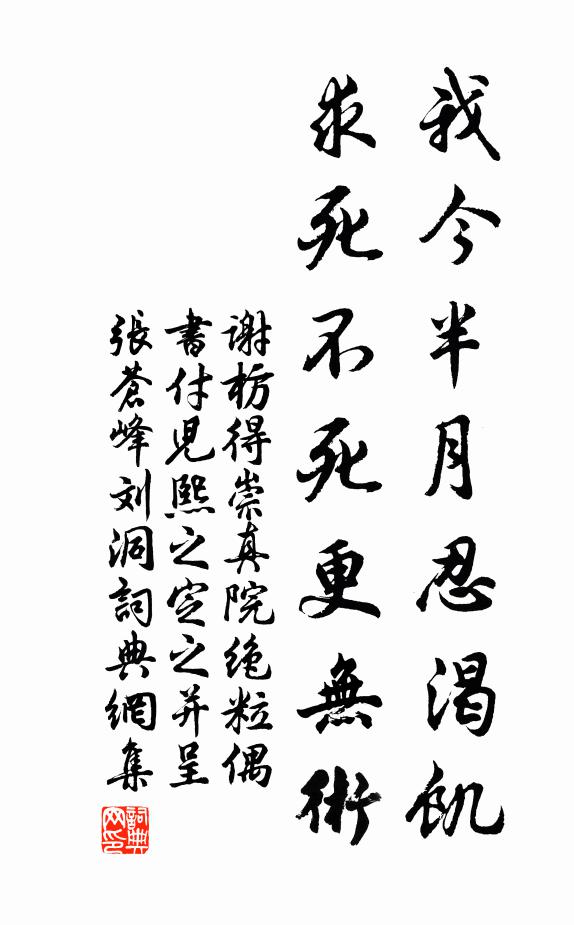 我今半月忍渴飢
求死不死更無術
谢枋得崇真院绝粒偶
書付児熙之定之并呈
張蒼峰刘洞詞典網集
詞典网印